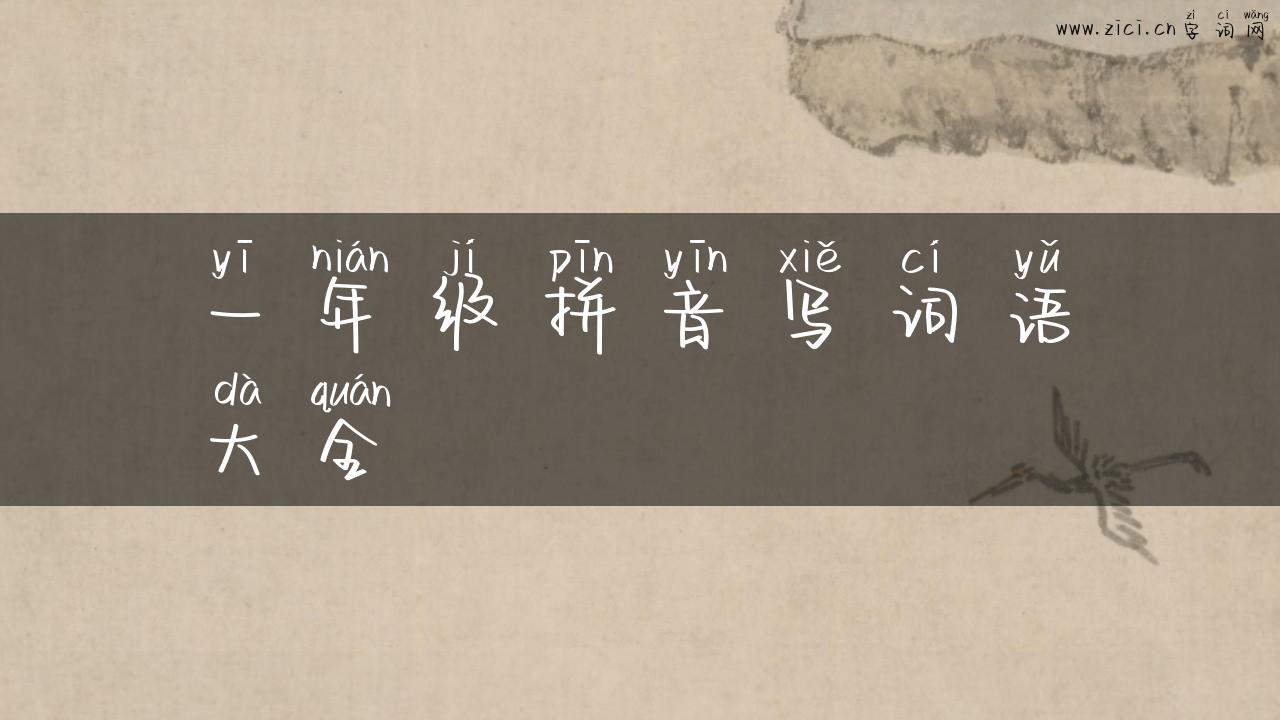 zì cí wǎng
www.zici.cn 字词网
yī nián jí pīn yīn xiě cí yǔ
一年级拼音写词语
dà quán
大全